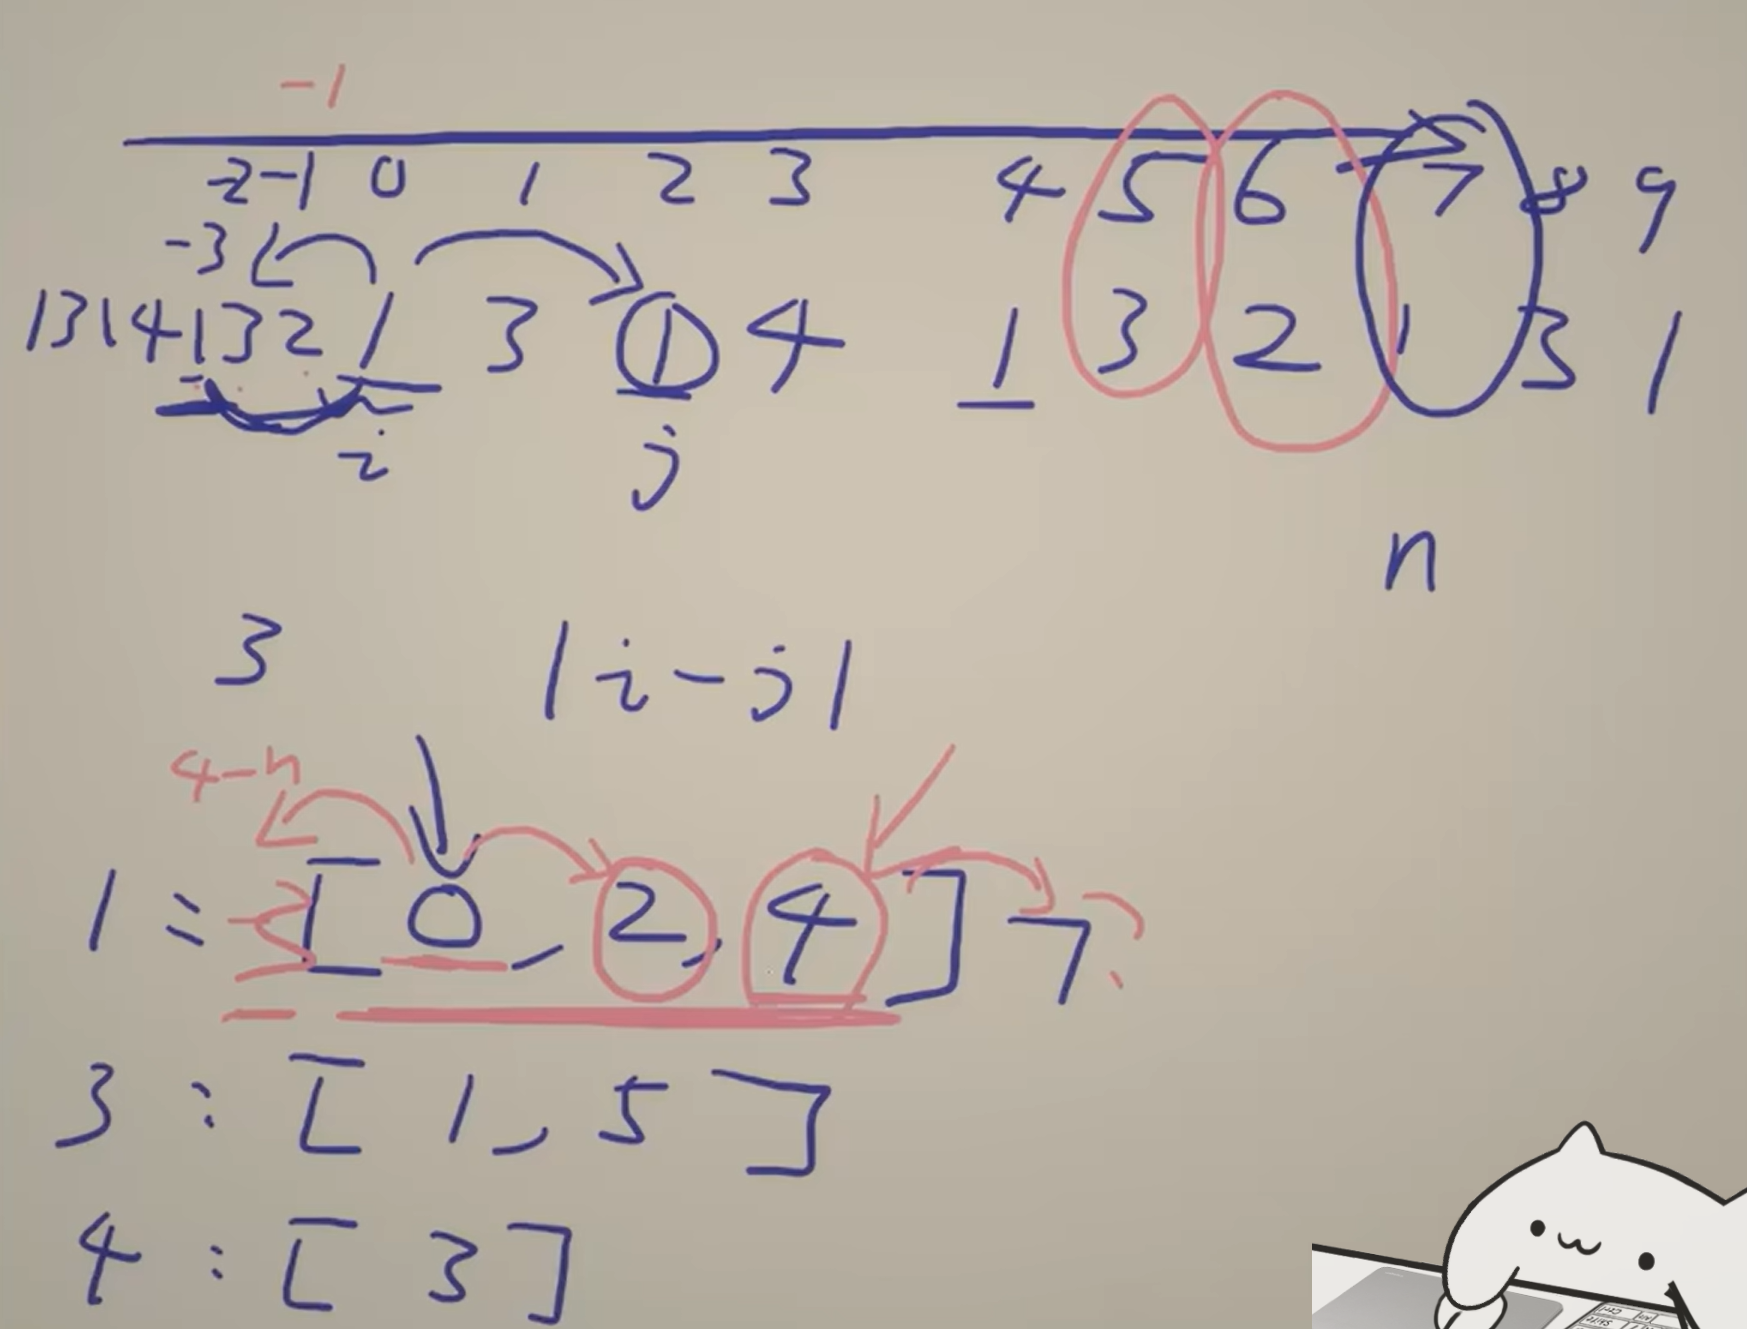 -1
-2 -1 0 1 2 3 4 5 6 7 8 9
-3
1 3 1 4 1 3 2 1 3 1 4 1 3 2 1 3 1
i j
n
3 |i-j|
4-n
1 = [0, 2, 4] 7
3 : [1, 5]
4 : [3]